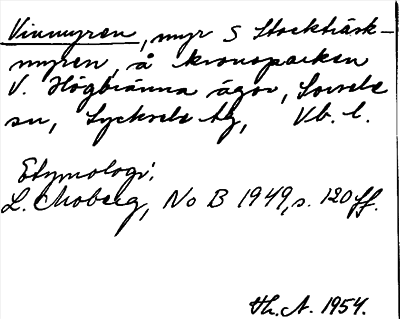 Vinmyren, myr S Stockträsk-
myren, å kronoparken
V. Högbränna ägor, Sorsele
sn, Lycksele tg, Vb. l.
Etymologi:
L. Moberg, No B 1949, s. 120 ff.
Th. A. 1954.